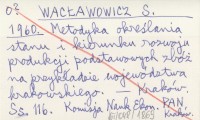 02 WACŁAWOWICZ S.
1960. Metodyka określania
stanu i kierunku rozwoju
produkcji podstawowych zbóż
na przykładzie województwa
krakowskiego. Kraków.
Ss. 116. Komisja Nauk Ekon. PAN,
Kraków.